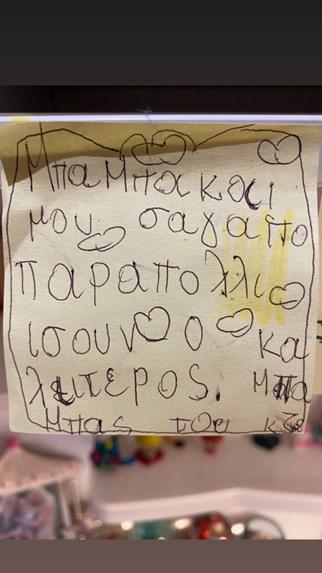 Μπαμπακαι
μου σαγαπο
παραπολλι
ισουν ο κα
λητερος. Μπα
Μπας τορι κζε